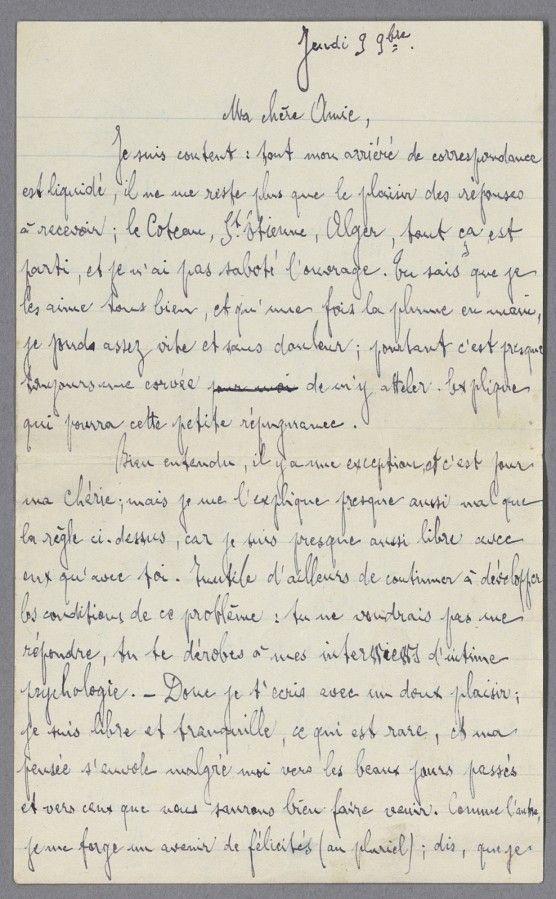 Jeudi 9 9bre.
Ma chère Amie,
Je suis content : tout mon arriéré de correspondance
est liquidé, il ne me reste plus que le plaisir des réponses
à recevoir ; le Coteau, St. Etienne, Alger, tout ça est
parti, et je n'ai pas saboté l'ouvrage. Tu sais que je
les aime tous bien, et qu'une fois la plume en main,
je ponds assez vite et sans douleur ; pourtant c'est presque
toujours une corvée pour moi de m'y atteler. Explique
qui pourra cette petite répugnance.
Bien entendu, il y a une exception, et c'est pour
ma chérie ; mais je me l'explique presque aussi mal que
la règle ci-dessus, car je suis presque aussi libre avec
eux qu'avec toi. Inutile d'ailleurs de continuer à développer
les conditions de ce problème : tu ne voudrais pas me
répondre, tu te dérobes à mes interviews d'intime
psychologie. — Donc je t'écris avec un doux plaisir ;
je suis libre et tranquille, ce qui est rare, et ma
pensée s'envole malgré moi vers les beaux jours passés
et vers ceux que nous saurons bien faire venir. Comme l'autre,
je me forge un avenir de félicités (au pluriel) ; dis, que je